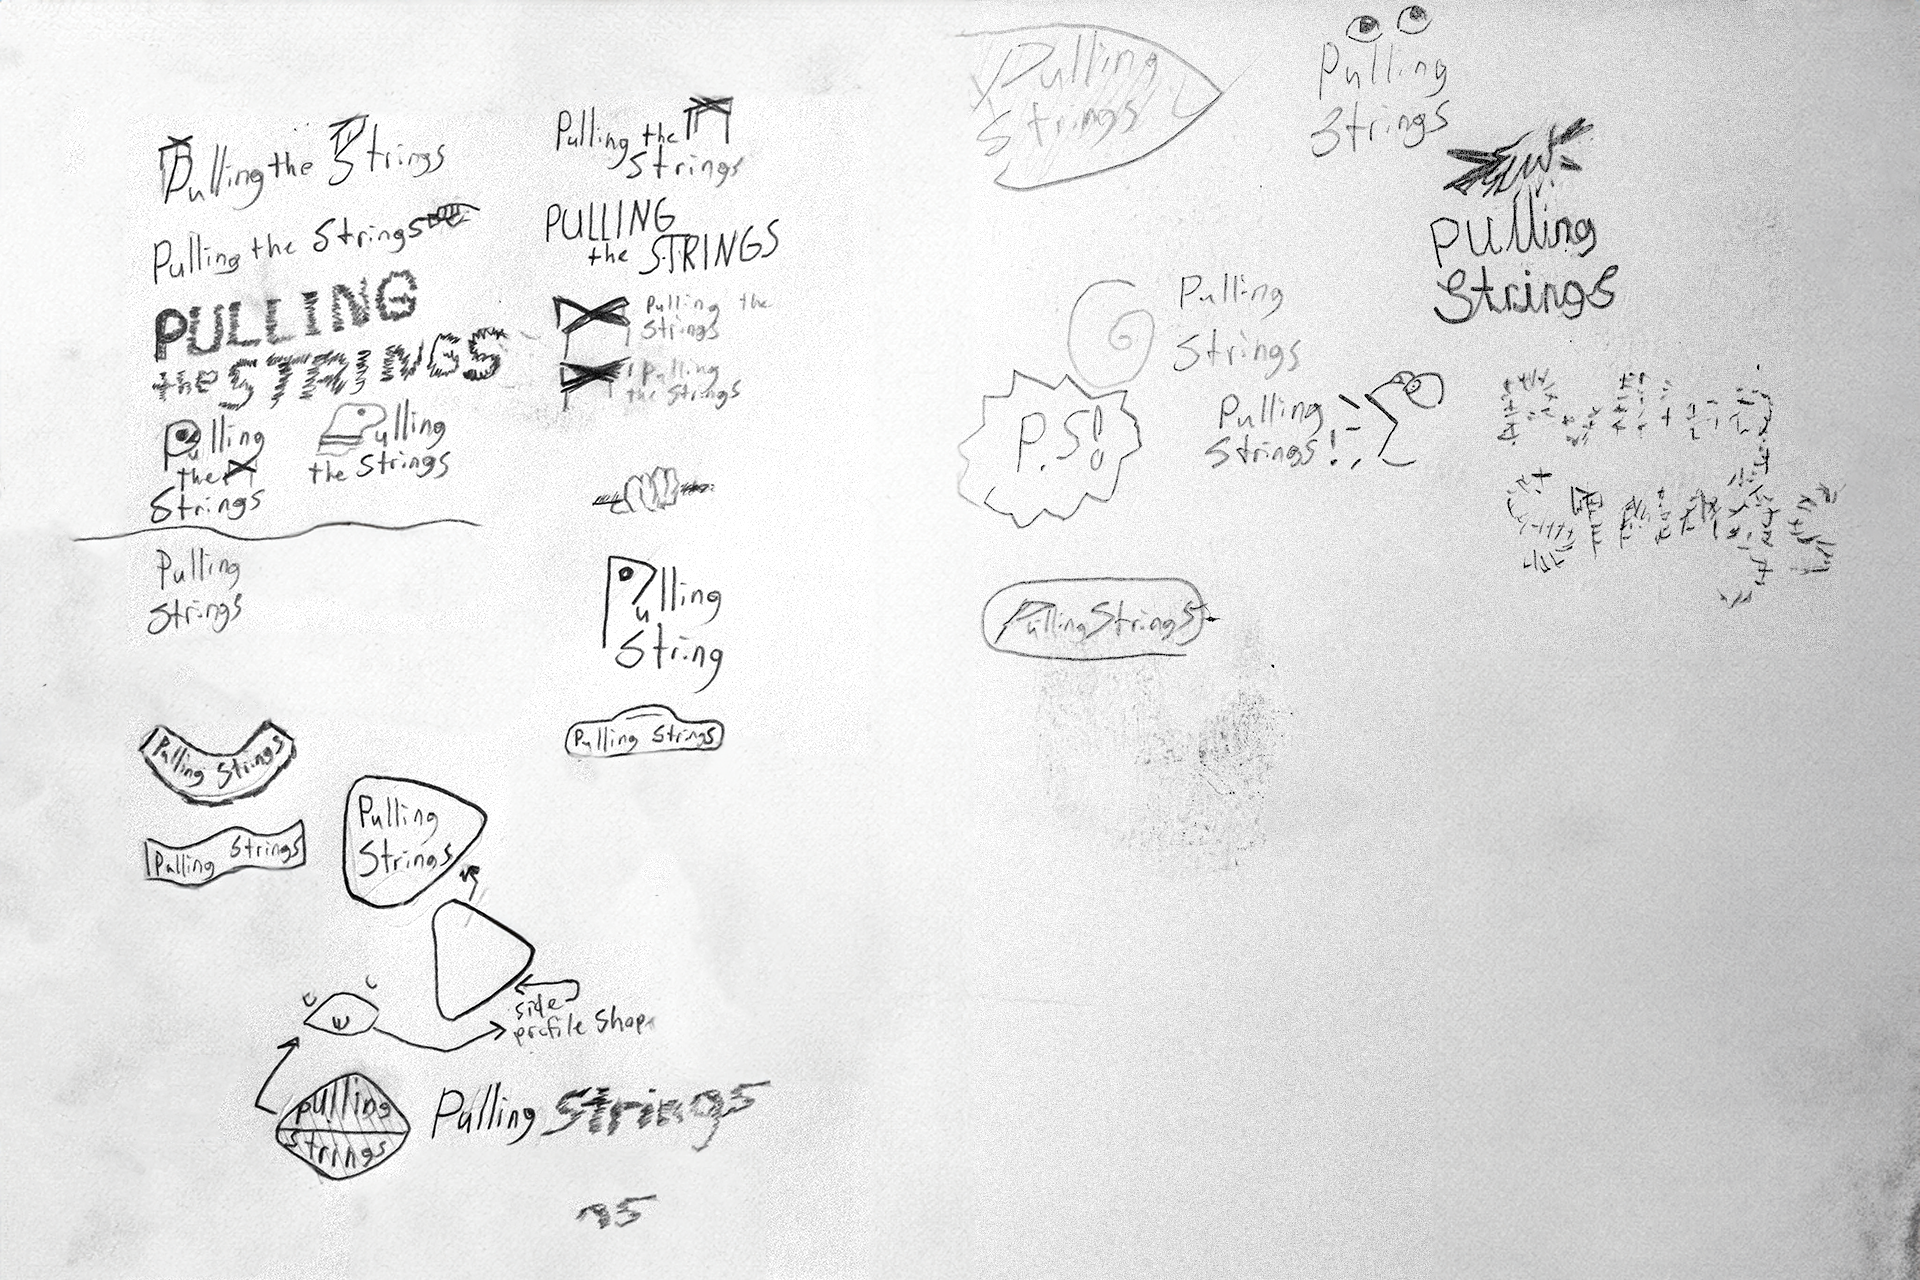 Pulling the Strings
Pulling the Strings
PULLING
the STRINGS
Pulling
the
Strings
Pulling
the Strings
Pulling
Strings
Pulling the
Strings
PULLING
the STRINGS
Pulling the
Strings
Pulling
the Strings
Pulling
String
Pulling Strings
Pulling Strings
Pulling Strings
Pulling
Strings
side
profile Shape
pulling
strings
Pulling Strings
Pulling
Strings
Pulling
Strings
Pulling
Strings
Pulling
Strings
P.S!
Pulling
Strings!
Pulling
Strings
Pulling Strings